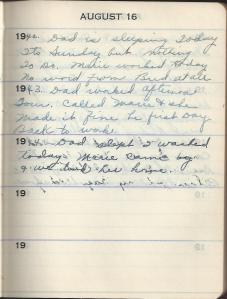 AUGUST 16
1942. Dad is sleeping Today
Its Sunday but nothing
To Do. Marie worked today
No word from Bud at all
1943. Dad worked afternoon
Tour. Called Marie & she
made it fine her first Day
Back to work.
1944. Dad slept I washed
today. Marie came by
& we took her home.
19
19